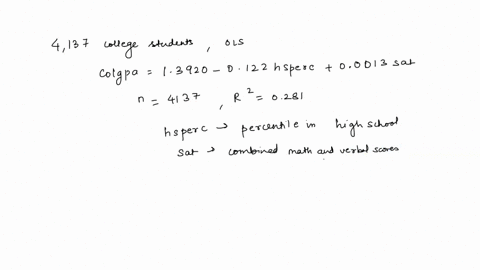 4,137 college students, OLS
Colgpa = 1.3920 - 0.122 hsperc + 0.0013 sat
n = 4137, R² = 0.281
hsperc → percentile in high school
Sat → combined math and verbal scores